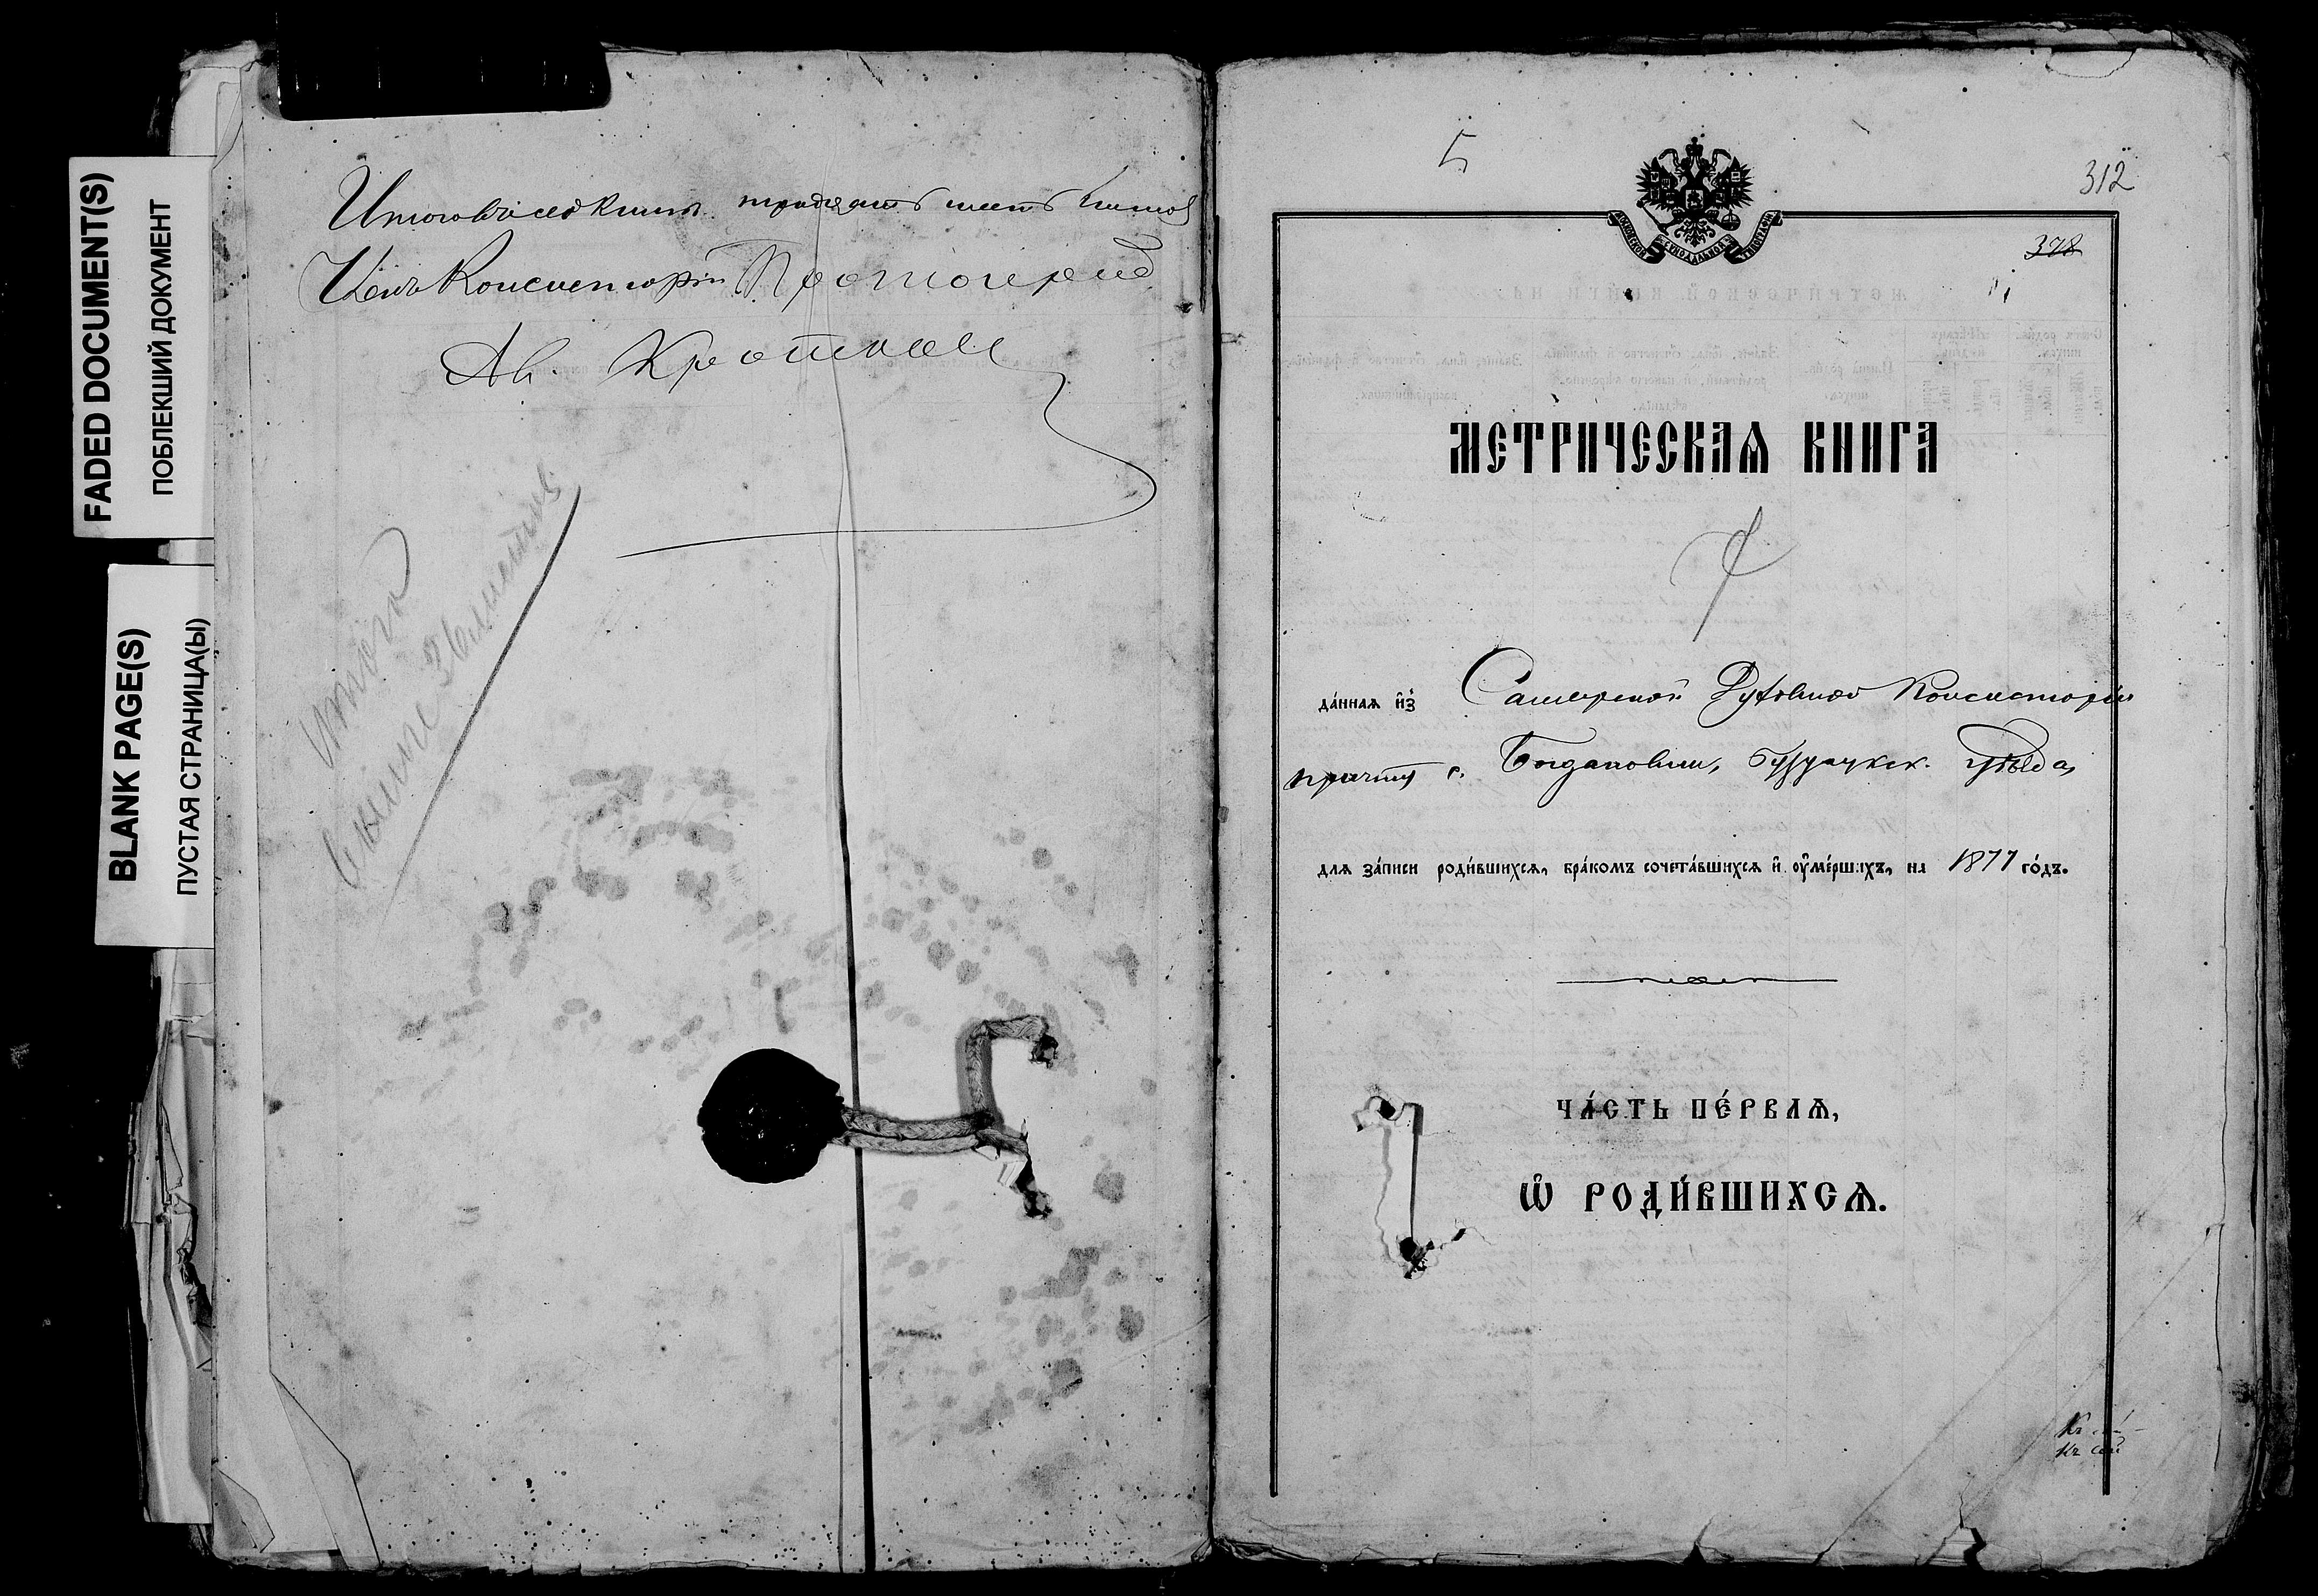 FADED DOCUMENT(S)
ПОБЛЕКШИЙ ДОКУМЕНТ
BLANK PAGE(S)
ПУСТАЯ СТРАНИЦА(Ы)
Итого въ сей книгѣ тридцать шесть листовъ
Членъ Консисторіи Протоіерей
Ал. Кротковъ
Итого
выше 36 листовъ
5
312
378
МЕТРИЧЕСКАѦ КНИГА
да́ннаѧ и҆з̾ Самарской Духовной Консисторіи
причту с. Богдановки, Бузулукск. уѣзда,
длѧ за́писи роди́вшихсѧ, бра́комъ сочета́вшихсѧ и҆ оу҆ме́ршихъ, на 1877 го́дъ.
ЧА́СТЬ ПЕ́РВАѦ,
Ѡ҆ РОДИ́ВШИХСѦ.